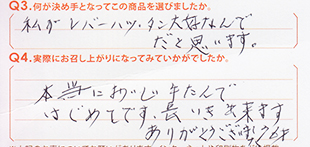 Q3.何が決め手となってこの商品を選びましたか。
私がレバーハツ・タン大好なんで
だと思います。
Q4.実際にお召し上がりになってみていかがでしたか。
本当においし
はじめてです、長いき出来ます
ありがとうございます